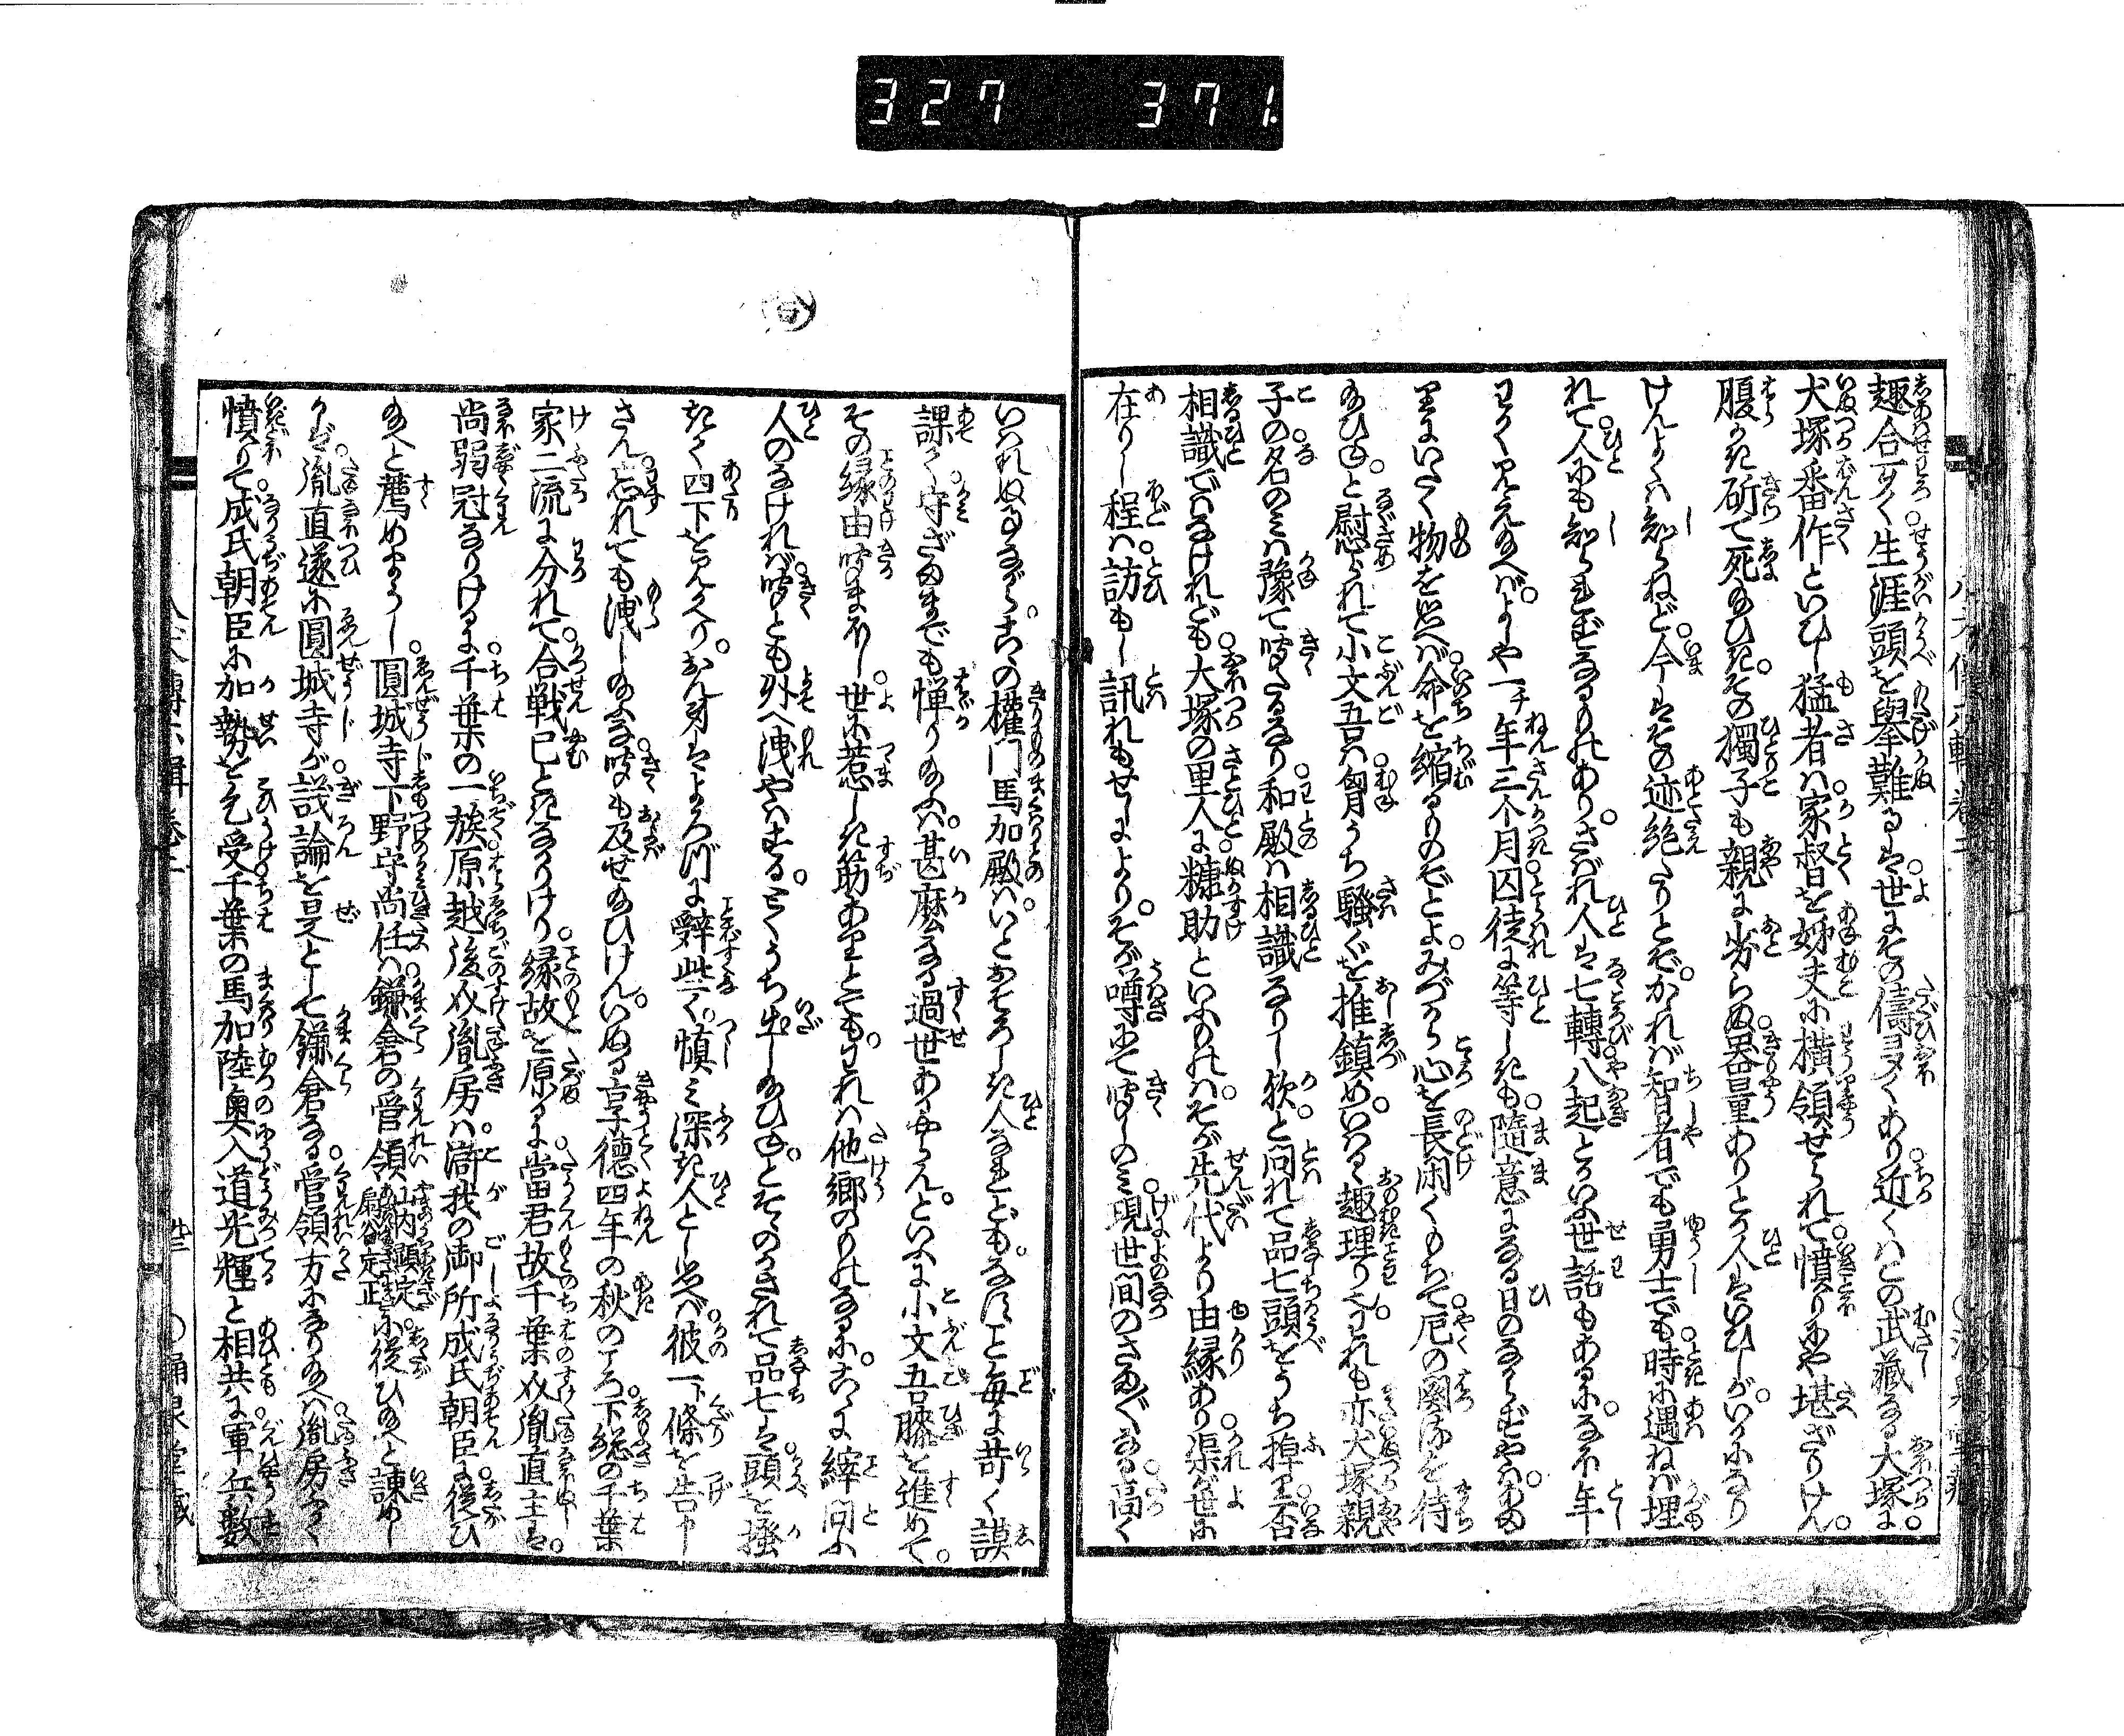 327 371.
趣合可く生涯頭を擧難るは世にその儔多くあり近くはこの武藏なる大塚に
犬塚番作といひし猛者は家督を姉夫に横領せられて憤りにや堪ざりけん
腹かき斫て死給ひきその獨子も親に劣らぬ器量ありとか人はいひしがいかになり
けんよくは知らねど今はその迹絶たりとぞかゝれば智者でも勇士でも時に遇ねば埋
れて人にも知られずなるものあり。さばれ人は七轉八起とかいふ世話もあるになほ年
わかく見え給へばよしや一チ年三个月囚徒に等しきも隨意になる日のなからずやは
物を思へば命を縮るものぞとよみづから心を長閑くもちて厄の關流を待
給ひねと慰められて小文吾は胷うち騒ぐを推鎮めいはるゝ趣理りなりわれも亦犬塚親
子の名のみは豫て聞たるなり和殿は相識なりし歟と問れて品七頭をうち掉り否
相識ではなけれども大塚の里人に糠助といふものはそが先代より由縁あり渠が世に
在りし程は訪もし訊れもせしによりそが噂にて聞しのみ現世間のさまざまなる高く
いはれぬ事ながらこゝの權門馬加殿はいとおそろしき人なれどもなす㕝毎に苛く謨
課く守ざまでも憚り給ふは甚麼なる過世あるやらんといふに小文吾膝を進めて
その縁由聞まほし世に惹しき筋ありとてもわれは他郷のものなるにこゝに縡問ふ
人のなければ聞とも外へ洩やはするとうち出し給ひねとそゝのかされて品七は頭を掻
きく四下を見かへりおん身はよろづに辭些く愼み深き人とし思へば彼一條を告申
さん忘れても洩し給ふな聞も及せ給ひけんいぬる享德四年の秋のころ下總の千葉
家二流に分れて合戰已ときなかりけり縁故を原るに當君故千葉介胤直主は
尚弱冠なりけるに千葉の一族原越後介胤房は滸我の御所成氏朝臣に從ひ
給へと薦めまうし圓城寺下野守尚任は鎌倉の管領山内顯定扇谷定正に從ひ給へと諌めし
かば胤直遂に圓城寺が議論を是として鎌倉なる管領方になり給へは胤房ふかく
憤りて成氏朝臣に加勢を乞受千葉の馬加陸奥入道光輝と相共に軍兵數